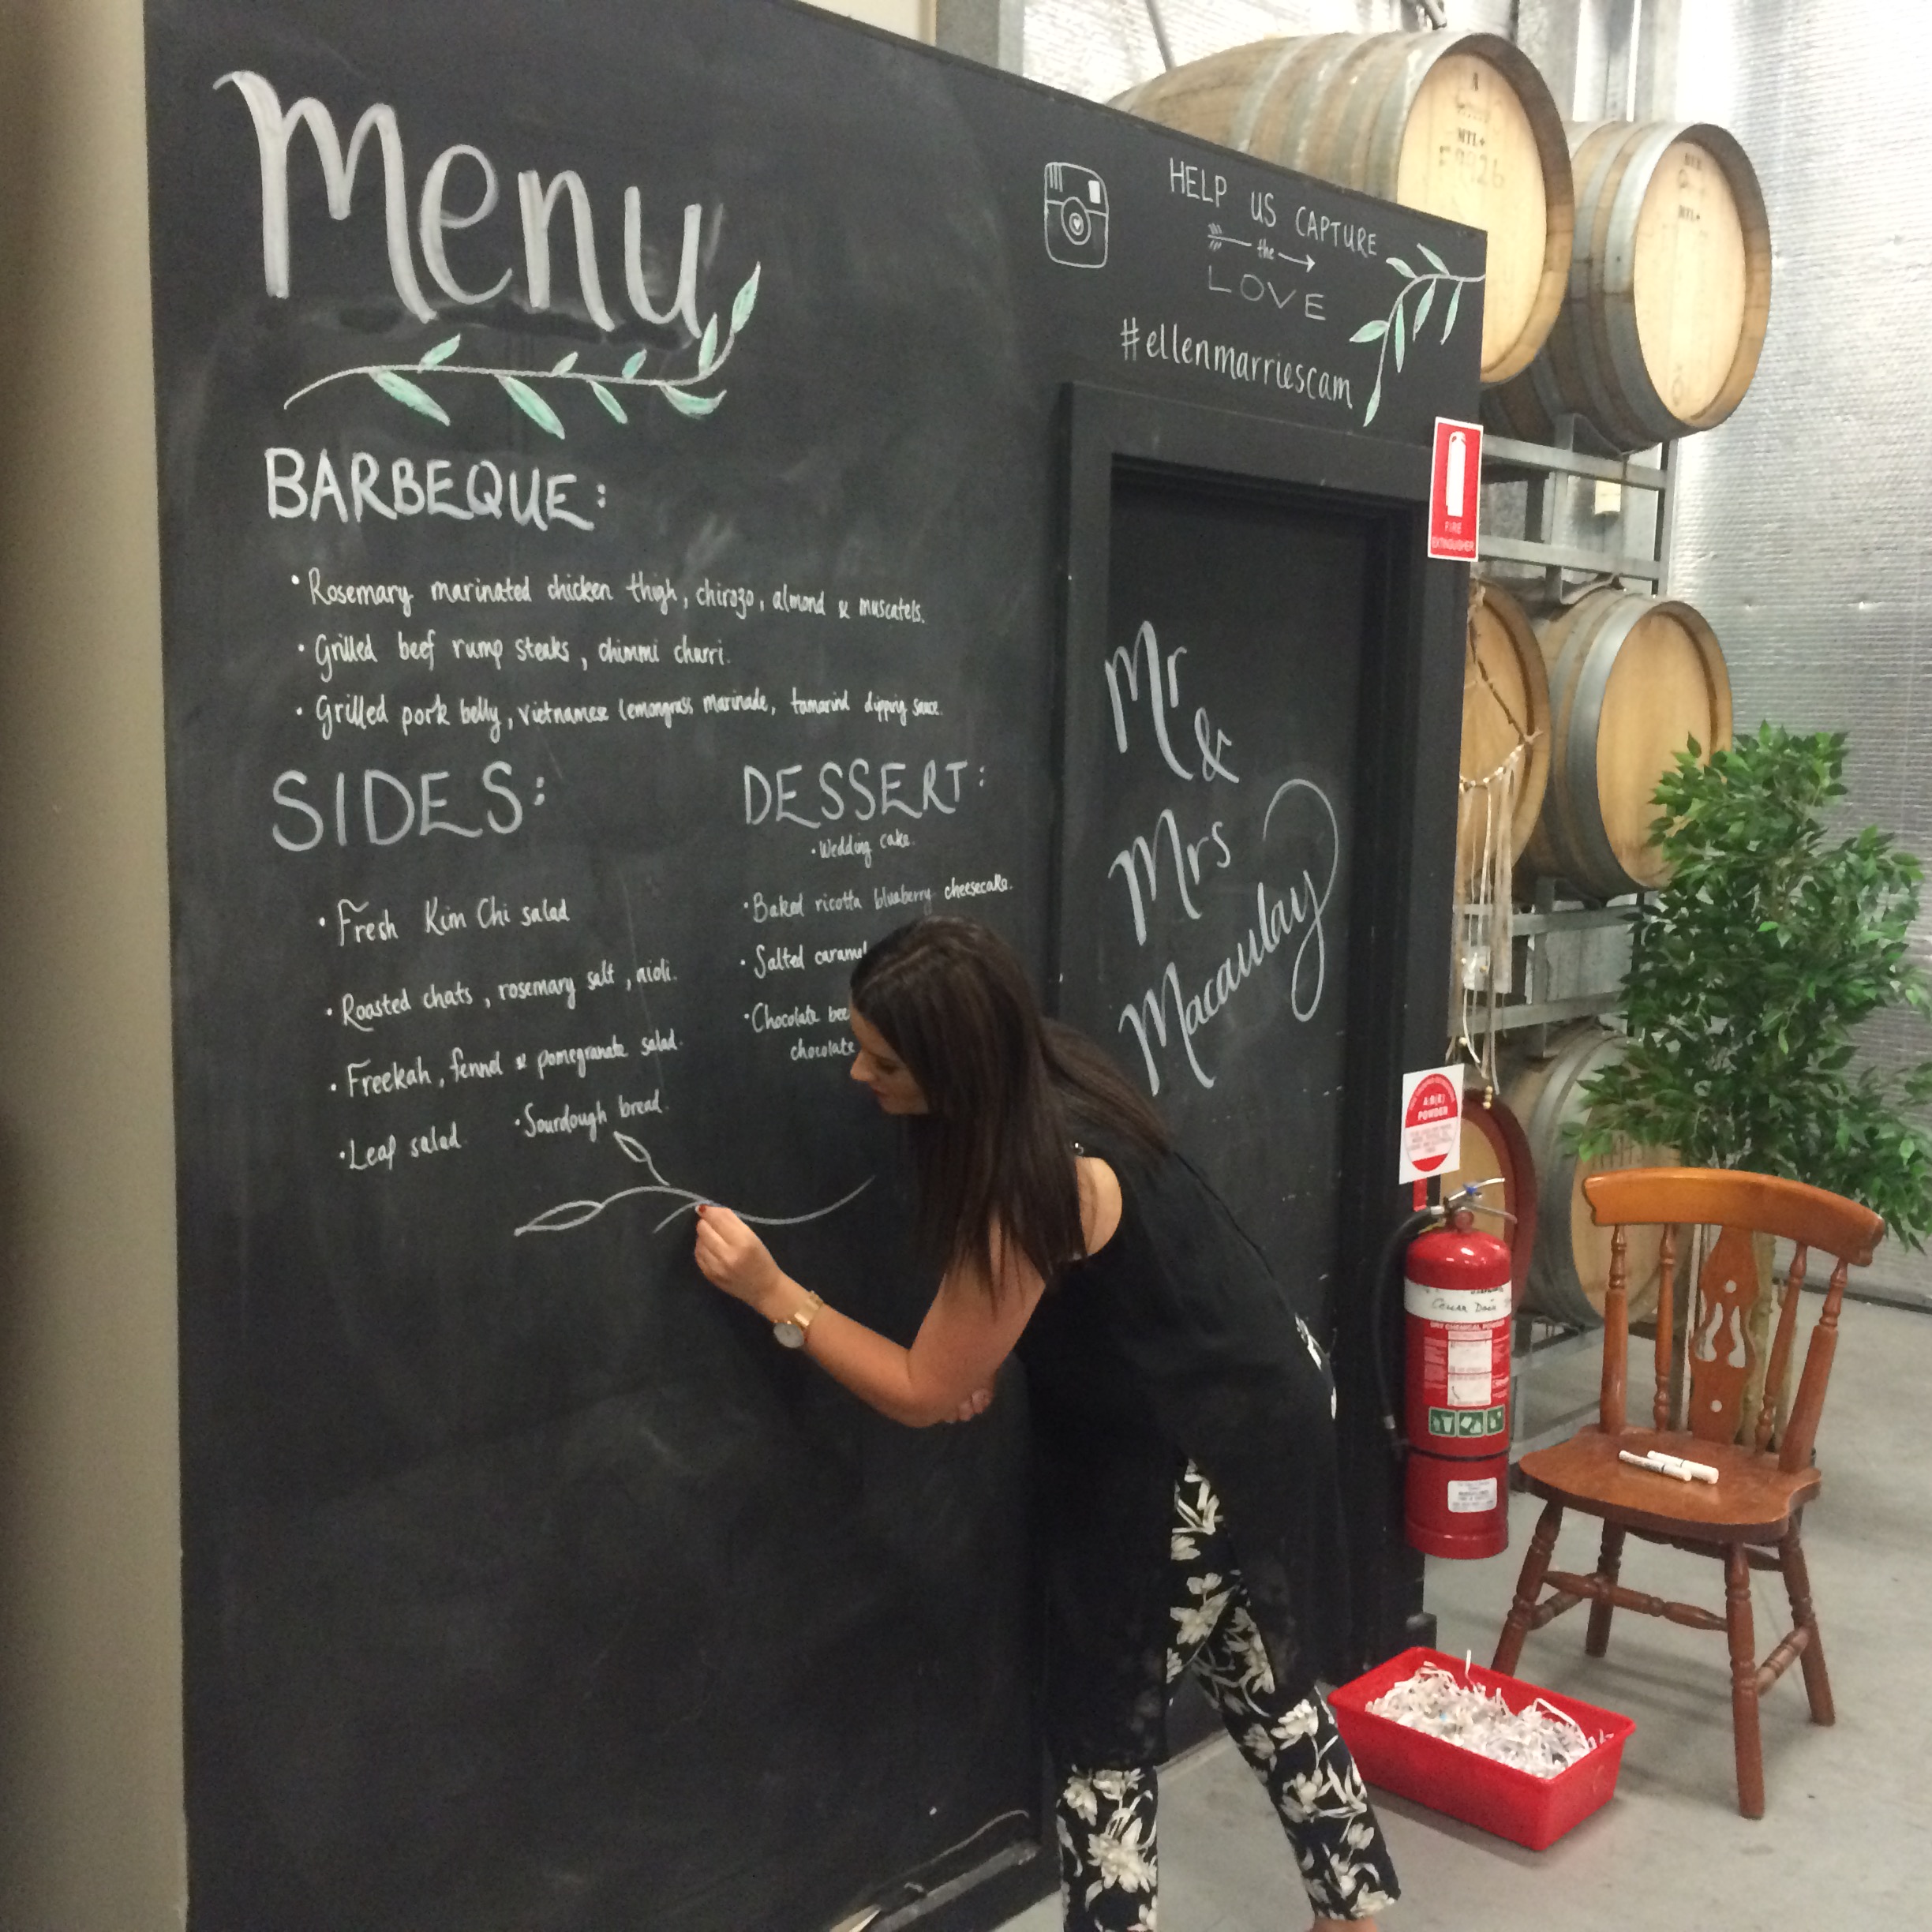 Menu
BARBEQUE:
• Rosemary marinated chicken thigh, chirozo, almond & muscatels.
• Grilled beef rump steaks, chimmi churri.
• Grilled pork belly, vietnamese lemongrass marinade, tamarind dipping sauce.
SIDES:
• Fresh Kim Chi salad
• Roasted chats, rosemary salt, aioli.
• Freekah, fennel & pomegranate salad.
• Leaf salad
• Sourdough bread.
DESSERT:
• Wedding cake.
• Baked ricotta blueberry cheesecake.
• Salted caramel
• Chocolate
chocolate
HELP US CAPTURE
the
LOVE
#ellenmarriescam
Mr
&
Mrs
Macaulay
FIRE
EXTINGUISHER
MTL+
F9926
MTL+
A:B(E)
POWDER
DRY CHEMICAL POWDER